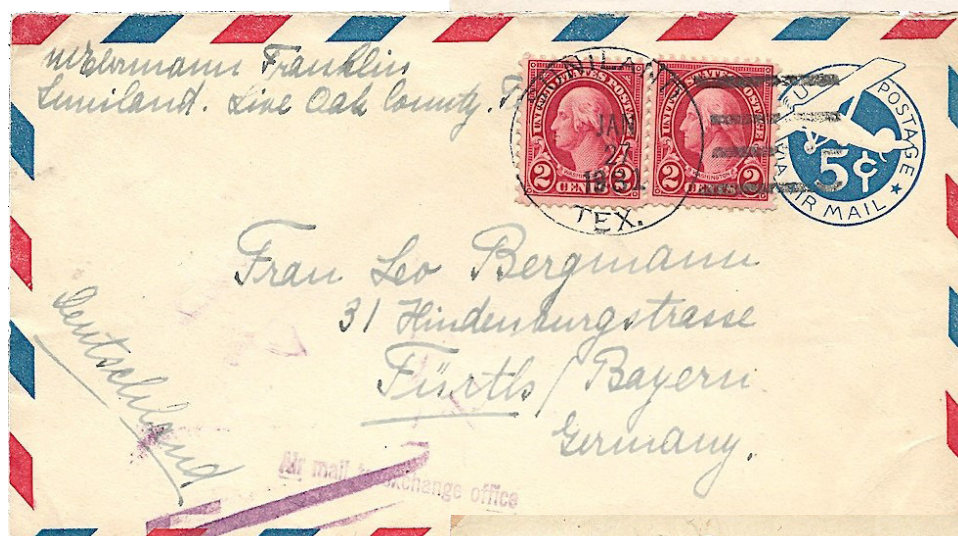 Ehrmann Franklin
Suniland. Live Oak County.
UNITED STATES POSTAGE
WASHINGTON
2 CENTS 2
STATES POSTAGE
WASHINGTON
2 CENTS 2
JAN
27
TEX.
POSTAGE
5¢
VIA AIR MAIL
Frau Leo Bergmann
31 Hindenburgstrasse
Fürth / Bayern
Germany.
Deutschland
Air mail to exchange office